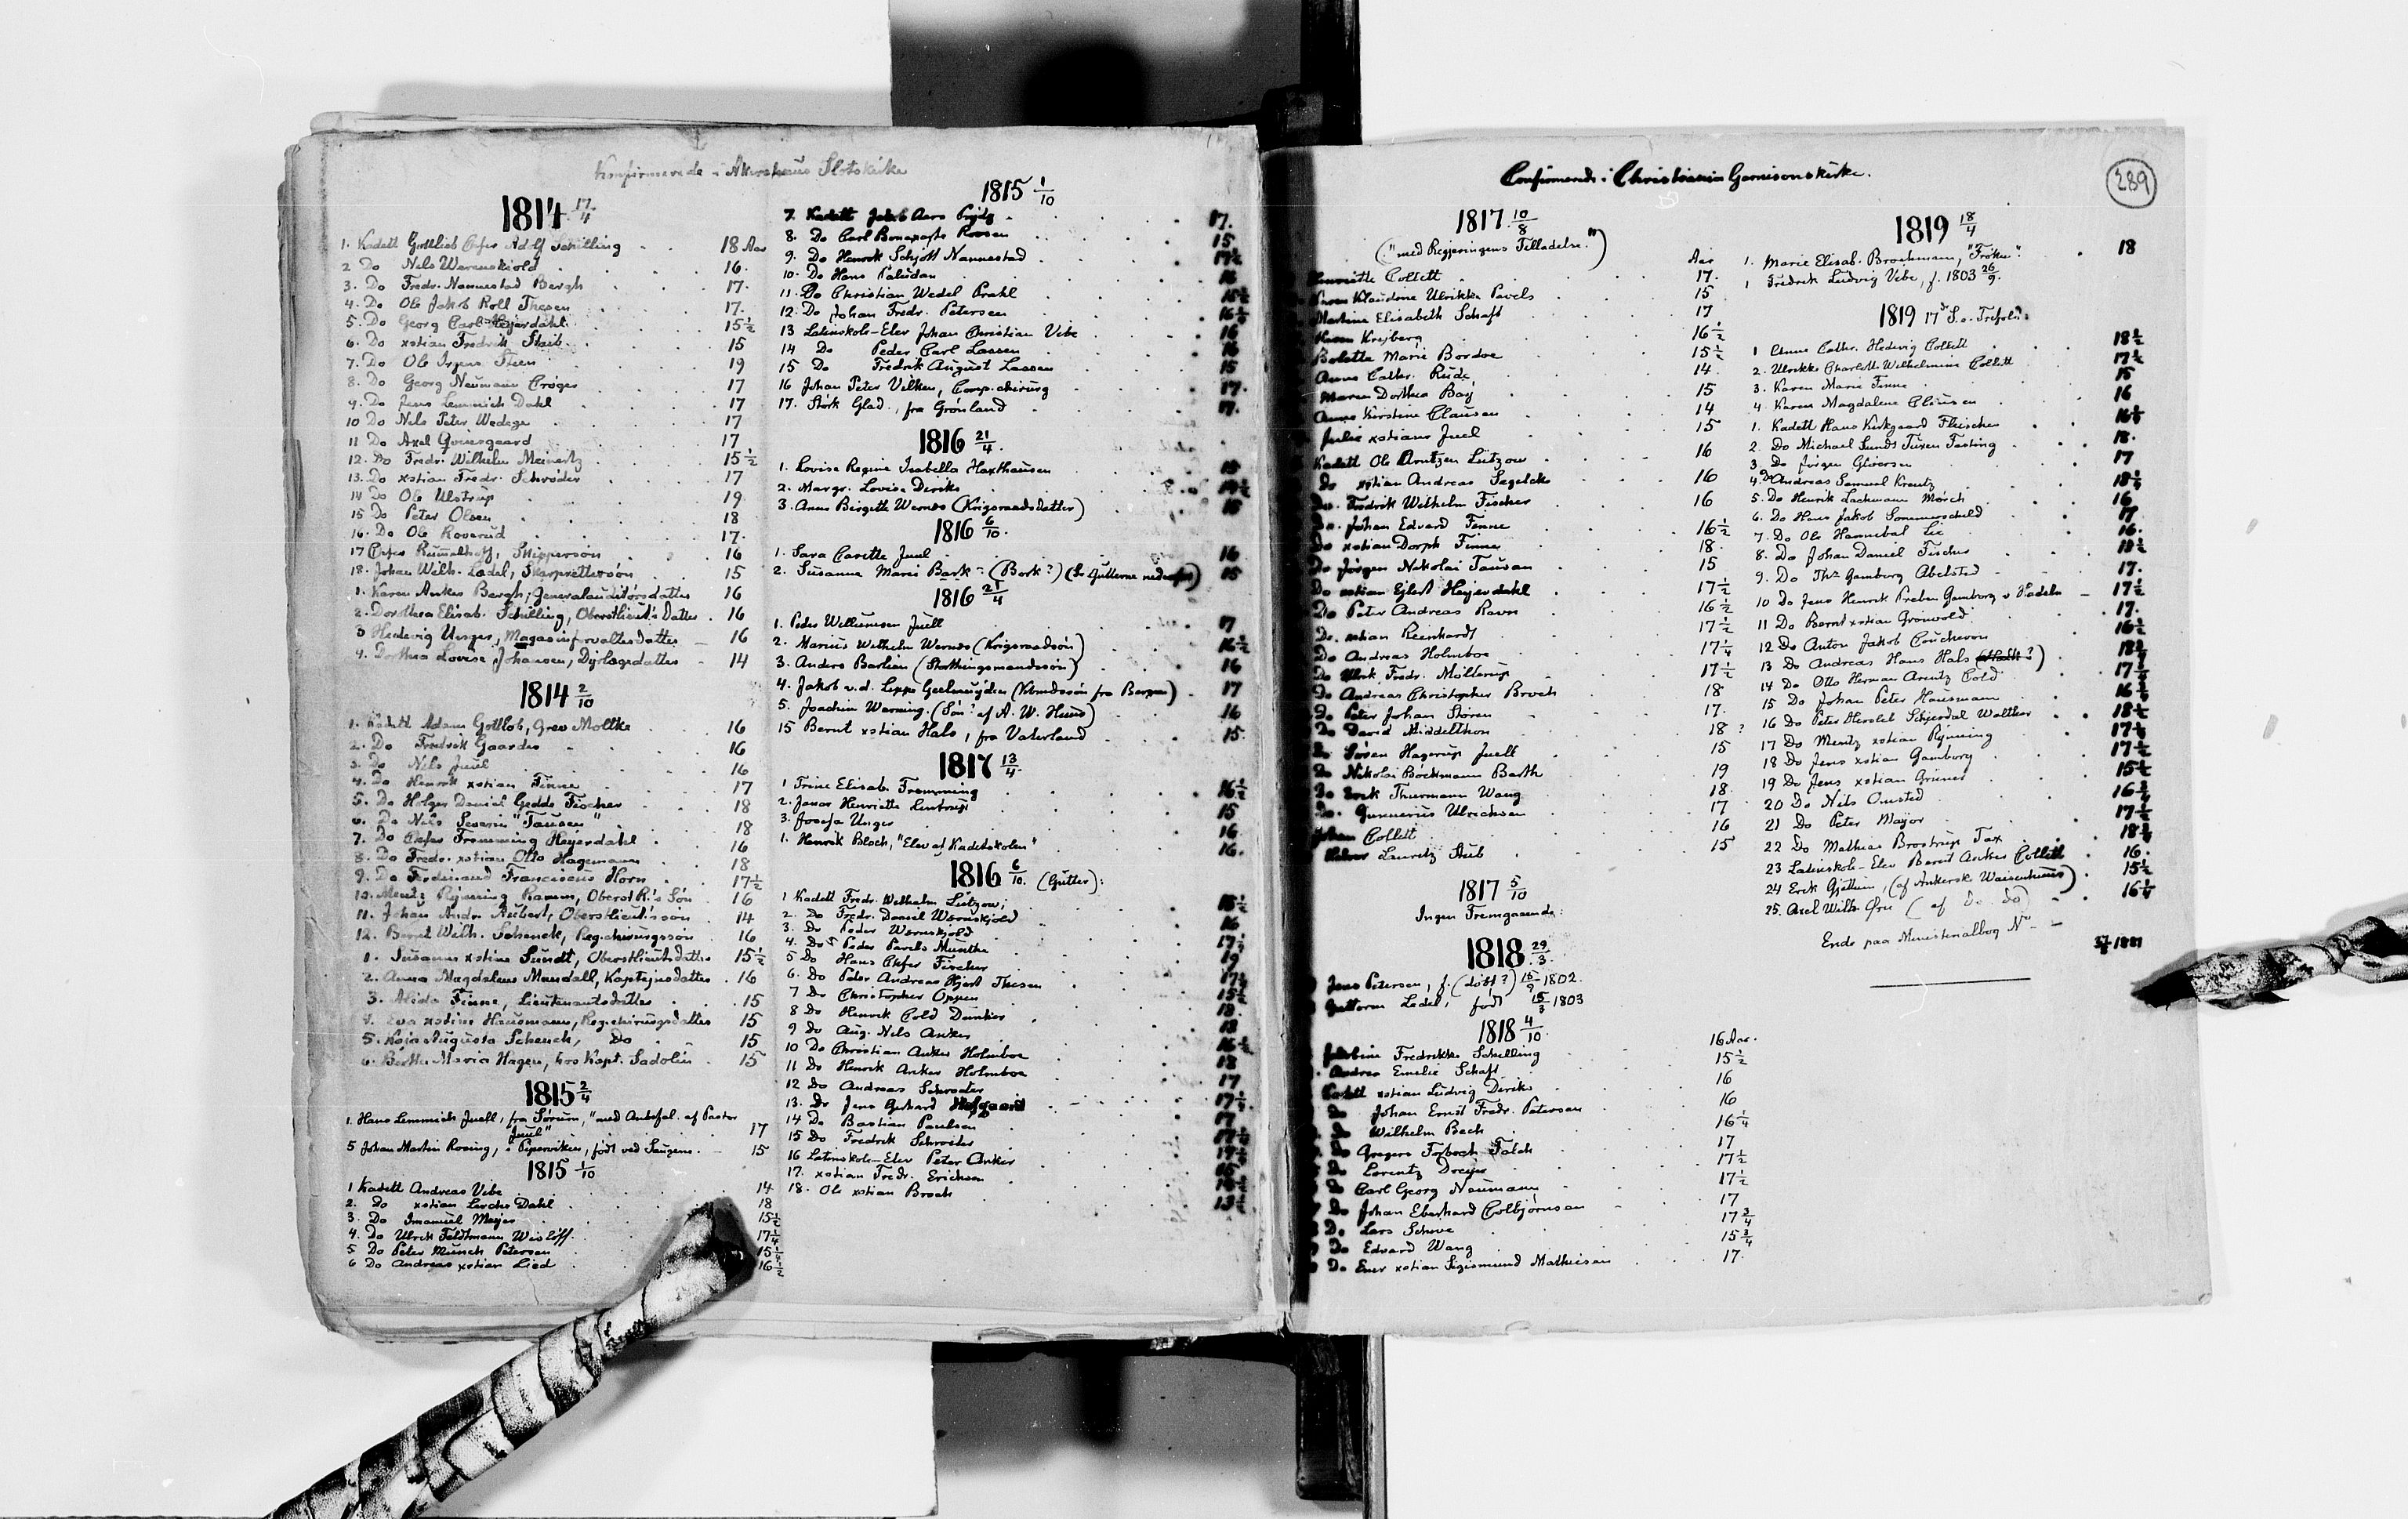 Konfirmerede i Akershus Slotskirke
1814 17/4
1. Kadett Gottlieb Chrfer Adolf Schilling 18 Aar
2 Do Nils Werenskiold 16.
3. Do Fredr. Nannestad Bergh 17.
4. Do Ole Jakob Roll Thesen 17.
5. Do Georg Carl Heyerdahl 15½
6. Do xstian Fredrik Staib 15
7. Do Ole Irgens Steen 19
8. Do Georg Neumann Crøger 17
9. Do Jens Lemmich Dahl 17
10 Do Nils Peter Wedege 17
11 Do Axel Qvisgaard 17
12. Do Fredr. Wilhelm Meinertz 15½
13. Do xstian Fredr. Schrøder 17
14 Do Ole Ulstrup 19.
15 Do Peter Olsen 18
16. Do Ole Roverud 17.
17 Chrfer Rummelhoff, Skippersøn 16
18. Johan Wilh. Ledel, Skarprettersøn 15
1. Karen Anker Bergh, Generalauditørsdatter 16
2. Dorothea Elisab. Schilling, Oberstlieut's Datter 16
3 Hedevig Unger, Magasinforvaltersdatter 16
4. Dorthea Lovise Johansen, datter 14
1814 2/10
1. Kadett Adam Gottlob, Grev Moltke 16
2. Do Fredrik Gaarder 16
3. Do Nils Juul 16
4. Do Henrik xstian Finne 17
5. Do Holger Daniel Gedde Fischer 18
6. Do Nils Severin "Tausen" 18
7. Do Chrfer Fremming Heyerdahl 16
8. Do Fredr. xstian Otto Hagemann 18
9. Do Ferdinand Franciscus Horn 17½
10. Mentz Rynning Ramm, Oberst R.'s Søn 16
11. Johan Andr. Aubert, Oberstlieut.'s søn 14
12. Bernt Wilh. Schenck, Reg.chirurgssøn 16
1. Susanne xstine Sundt, Oberstlieutsdatter 15½
2. Anna Magdalena Mandall, Kaptejnsdatter 16
3. Alida Finne, Lieutenantsdatter 15
4. Eva xstine Hausmann, Reg.chirurgsdatter 15
5. Kaja Augusta Schenck, Do 15
6. Berthe Maria Hagen, hos Kapt. Fadolin 15
1815 2/4
1. Hans Lemmich Juell, fra Sørum, "med Anbefal. af Pastor
Juul" 17
5 Johan Martin Rosing, i Piperviken, født ved Saugene. 15
1815 1/10
1 Kadett Andreas Vibe 14
2. Do xstian Lerche Dahl 18
3. Do Imanuel Meyer 15½
4. Do Ulrik Feldtmann Wisløff 17¼
5 Do Peter Munch Petersen 15¼
6 Do Andreas xstian Lied 16½
1815 1/10
7. Kadett Jakob Aars Prydz 17.
8. Do Carl Bonaparte Roosen 15
9. Do Henrik Schjøtt Nannestad 17½
10. Do Hans Paludan 16
11. Do Christian Wedel Prahl 15½
12. Do Johan Fredr. Petersen 16½
13 Latinskole-Elev Johan Christian Vibe 16
14 Do Peder Carl Lassen 16
15 Do Fredrik August Lassen 15
16 Johan Peter Vilken, Comp.chirurg 17.
17. Størk Glad, fra Grønland 17.
1816 21/4
1. Lovise Regine Isabella Haxthausen
2. Margr. Lovise Diriks
3. Anne Birgitte Wernøe (Krigsraadsdatter) 15
1816 6/10.
1. Sara Cavette Juul 16
2. Susanna Marie Bark - (Bork?) (Se Gutterne nedenfor) 15
1816 21/4
1. Peder Willumsen Juell 17
2. Marius Wilhelm Wernøe (Krigsraadsøn) 16½
3. Anders Barlien (Storthingsmandssøn) 16
4. Jakob v.d. Lippe Geelmuyden (Kbmdssøn fra Bergen) 17
5. Joachim Warming. (Søn? af A. W. Hund) 16
15 Bernt xstian Hals, fra Vaterland 15.
1817 13/4.
1 Trine Elisab. Fremming 16½
2. Janna Henriette Lentrup 15
3. Josefa Unger 16
1. Henrik Bloch, "Elev af Kadetskolen" 16.
1816 6/10. (Gutter):
1 Kadett Fredr. Wilhelm Lützow, 15½
2. Do Fredr. Daniel Wernskjold 16
3. Do Peder Wernskjold 17½
4. Do Peder Pavels Munthe 19
5 Do Hans Chrfer Fischer
6. Do Peter Andreas Bjert Thesen
7 Do Christopher Oppen
8 Do Henrik Cold Dunker 18
9 Do Aug. Nils Anker
10 Do Christian Anker Holmboe
11 Do Henrik Anker Holmboe 18
12 Do Andreas Schrøeter 17
13. Do Jens Gerhard Hofgaard
14 Do Bastian Paulsen
15 Do Fredrik Schrøeter
16 Latinskole-Elev Peter Anker
17. xstian Fredr. Erichsen
18. Ole xstian Broch
Confirmerede i Christiania Garnisonskirke.
289
1817. 10/8
("med Regjeringens Tilladelse.")
Aar
Henriette Collett 17.
Karen Klaudine Ulrikke Pavels 15
Martine Elisabeth Schaft 17
Karen Krejberg 16½
Bolette Marie Bordoe 15½
Anne Cathr. Rude 14
Maren Dorthea Bay 15
Anne Kirstine Clausen 14
Julie xstiane Juel 15
Kadett Ole Arntzen Lützow 16
Do xstian Andreas Segelcke 16
Do. Fredrik Wilhelm Fischer 16
Do. Johan Edvard Finne 16½
Do xstian Dorph Finne 18.
Do Jørgen Nikolai Tausan 15
Do xstian Ejlert Heyerdahl 17½
Do Peter Andreas Ravn 16½
Do. xstian Reinhardt 17½
Do Andreas Holmboe 17¼
Do Ulrik Fredr. Møllerup 17½
Do Andreas Christopher Broch 18
Do Peter Johan Støren 17.
Do David Middelthon 18 ?
Do Søren Hagerup Juell 15
Do Nikolai Bøckmann Barth 19
Do Erik Thurmann Wang 18.
Do. Gunnerius Ulrichsen 17
Johan Collett 16
Halvor Lauritz Stub 15
1817 5/10
Ingen Fremgaaende.
1818. 29/3.
Jens Petersen, f. (døbt?) 15/9 1802.
Guttorm Ledel, født 15/3 1803
1818 4/10.
Jakobine Fredrikke Schilling 16 Aar.
Andrea Emelie Schaft 15½
Kadett xstian Ludvig Diriks 16
Do Johan Ernst Fredr. Petersen 16
Do Wilhelm Bech 16¼
Do Gregers Forbech Falch 17
Do Lorentz Dreyer 17½
Do Carl Georg Neumann 17½
Do Johan Eberhard Colbjørnsen 17
Do Lars Schive 17¾
Do Edvard Wang 15¾
Do Ener xstian Sigismund Mathiesen 17.
1819 18/4
1. Marie Elisab. Brochmann, "Frøken". 18
1 Fredrik Ludvig Vibe, f. 1803 26/9.
1819 17d S. e. Trefoln.:
1 Anne Cathr. Hedevig Collett 18½
2. Ulrikke Charlotte Wilhelmine Collett 17½
3. Karen Marie Finne 15
4 Karen Magdalene Clausen 16
1. Kadett Hans Kirkgaard Fleischer 16½
2. Do Michael Sundt Tuxen Fasting 18.
3. Do Jørgen Gløersen 17
4. Do Andreas Samuel Krentz 18½
5. Do Henrik Lachmann Mørch 16
6. Do Hans Jakob Sommerschild 17
7. Do Ole Hannebal Lie 16.
8. Do Johan Daniel Fischer 18½
9. Do Ths Gamborg Abelsted 17.
10 Do Jens Henrik Preben Gamborg v Hadeln 17½
11 Do Bernt xstian Grønvold 17.
12 Do Anton Jakob Coucheron 16½
13 Do Andreas Hans Hals
14 Do Otto Herman Arentz Cold
15 Do Johan Peter Hausmann
16 Do Peter Hersleb Schjerdal Walther 18½
17 Do Mentz xstian Rynning
18 Do Jens xstian Gamborg 17½
19 Do Jens xstian Grüner
20 Do Nils Onsted
21 Do Peter Majer
22 Do Mathias Brostrup Tax
23 Latinskole-Elev Bernt Anker Collett 16.
24 Erik Gjettum, (af Ankerske Waisenhuus) 15½
25. Axel Wilh. Øru (af do. do)
Ende paa Ministerialbog No